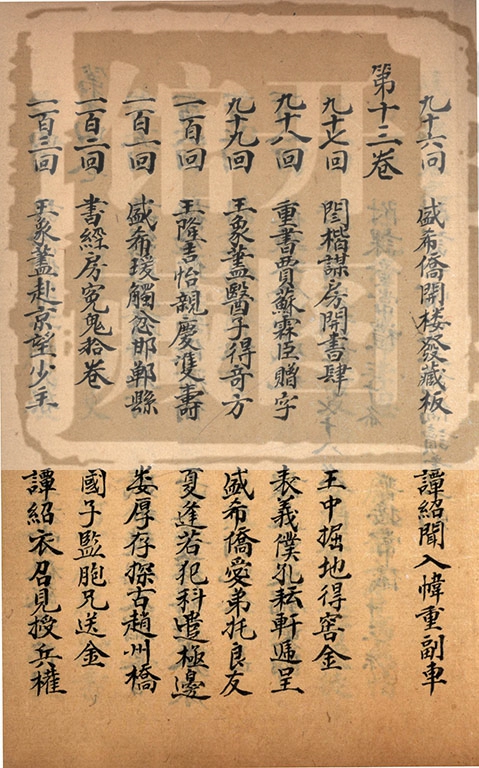 九十六回 盛希僑開楼發藏板 譚紹聞入幃重副車
第十三巻
九十七回 閆楷謀房開書肆 王中掘地得窖金
九十八回 重書賈蘇霖臣贈字 表義僕孔耘軒逓呈
九十九回 王象藎醫子得奇方 盛希僑愛弟托良友
一百回 王隆吉怡親慶䨇壽 夏逢若犯科遣極邊
一百一回 盛希瑗觸忿邯鄲縣 婁厚存探古趙州橋
一百二回 書經房寃鬼拾巻 國子監胞兄送金
一百三回 王象藎赴京望少主 譚紹衣召見授兵權